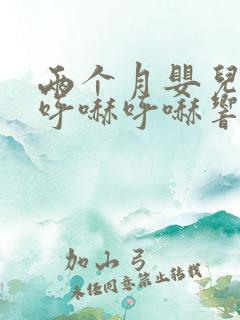 两个月婴兒
呼嚇呼嚇響
加山弓
未经同意禁止转载